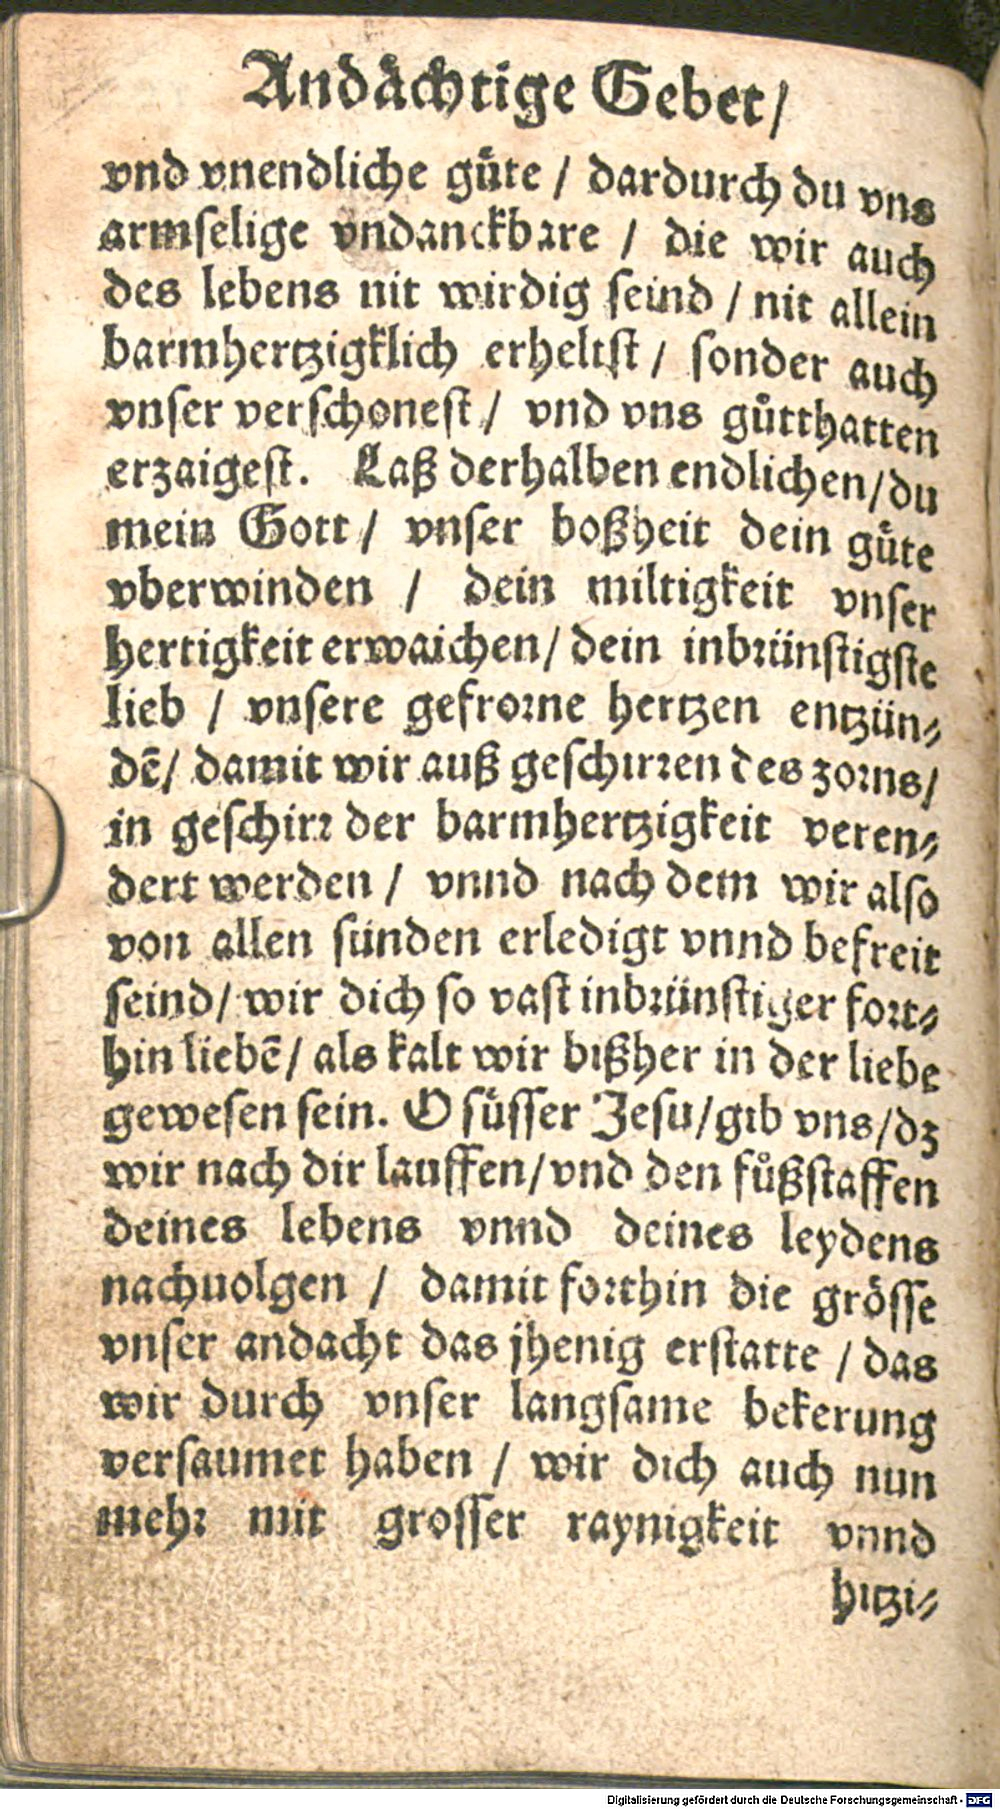 Andächtige Gebet/
vnd vnendliche guͤte / dardurch du vns
armselige vndanckbare / die wir auch
des lebens nit wirdig seind / nit allein
barmhertzigklich erheltst / sonder auch
vnser verschonest / vnd vns guͤtthatten
erzaigest. Laß derhalben endlichen/du
mein Gott / vnser boßheit dein guͤte
vberwinden / dein miltigkeit vnser
hertigkeit erwaichen/ dein inbrünstigste
lieb / vnsere gefrorne hertzen entzün⸗
dẽ/ damit wir auß geschirren des zorns/
in geschirr der barmhertzigkeit veren⸗
dert werden / vnnd nach dem wir also
von allen sünden erledigt vnnd befreit
seind/ wir dich so vast inbrünstiger fort⸗
hin liebẽ/ als kalt wir bißher in der liebe
gewesen sein. O suͤsser Jesu/gib vns/dz
wir nach dir lauffen/vnd den fuͦßstaffen
deines lebens vnnd deines leydens
nachuolgen / damit forthin die groͤsse
vnser andacht das jhenig erstatte / das
wir durch vnser langsame bekerung
versaumet haben / wir dich auch nun
mehr mit grosser raynigkeit vnnd
hitzi⸗
Digitalisierung gefördert durch die Deutsche Forschungsgemeinschaft - DFG